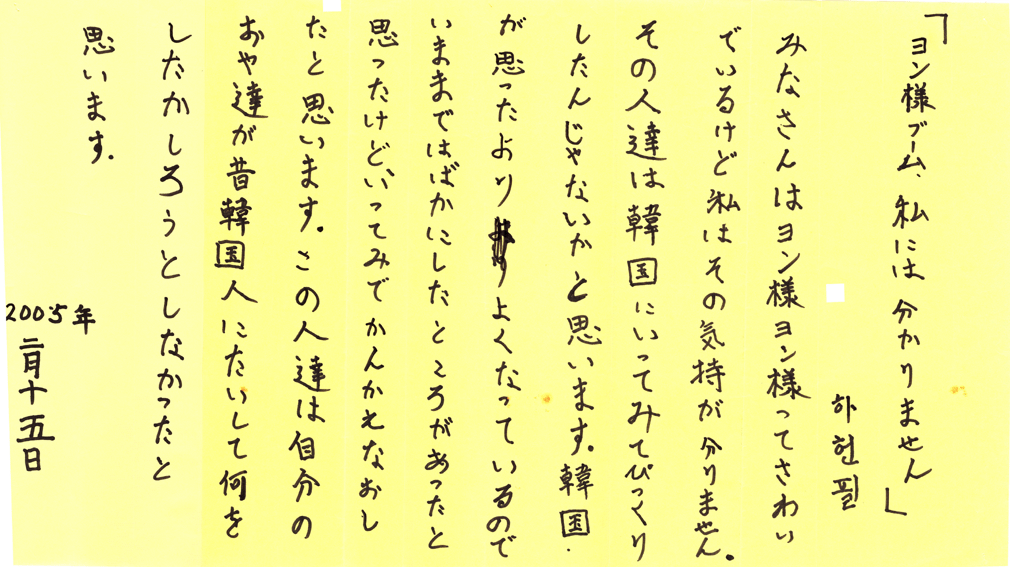 「ヨン様ブーム、私には分かりません」
하 헌 필
みなさんはヨン様ヨン様ってさわい
でいるけど私はその気持が分りません。
その人達は韓国にいってみてびっくり
したんじゃないかと思います。韓国.
が思ったよりよくなっているので
いままではばかにしたところがあったと
思ったけどいってみてかんかえなおし
たと思います。この人達は自分の
おや達が昔韓国人にたいして何を
したかしろうとしなかったと
思います.
2005年
二月十五日